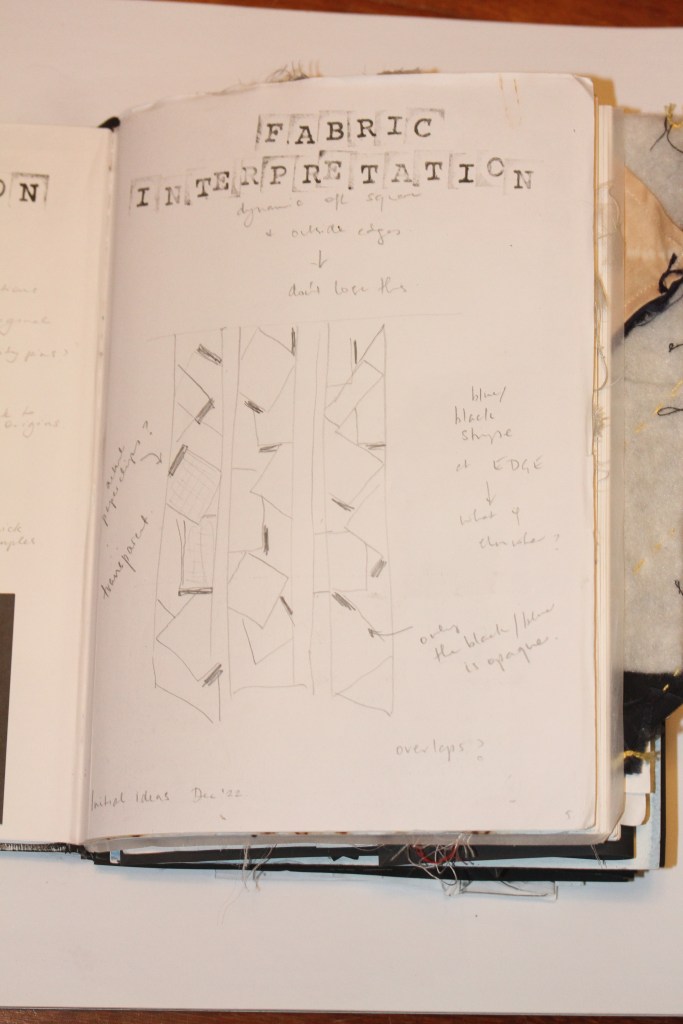 ON
agonal
origins
FABRIC
INTERPRETATION
dynamic off square
+ outside edges
don't lose this
blue/
black
stripe
at EDGE
what if
thinner?
paperclips?
transparent
only
the black/blue
is opaque.
overlaps?
Initial Ideas Dec '22
5